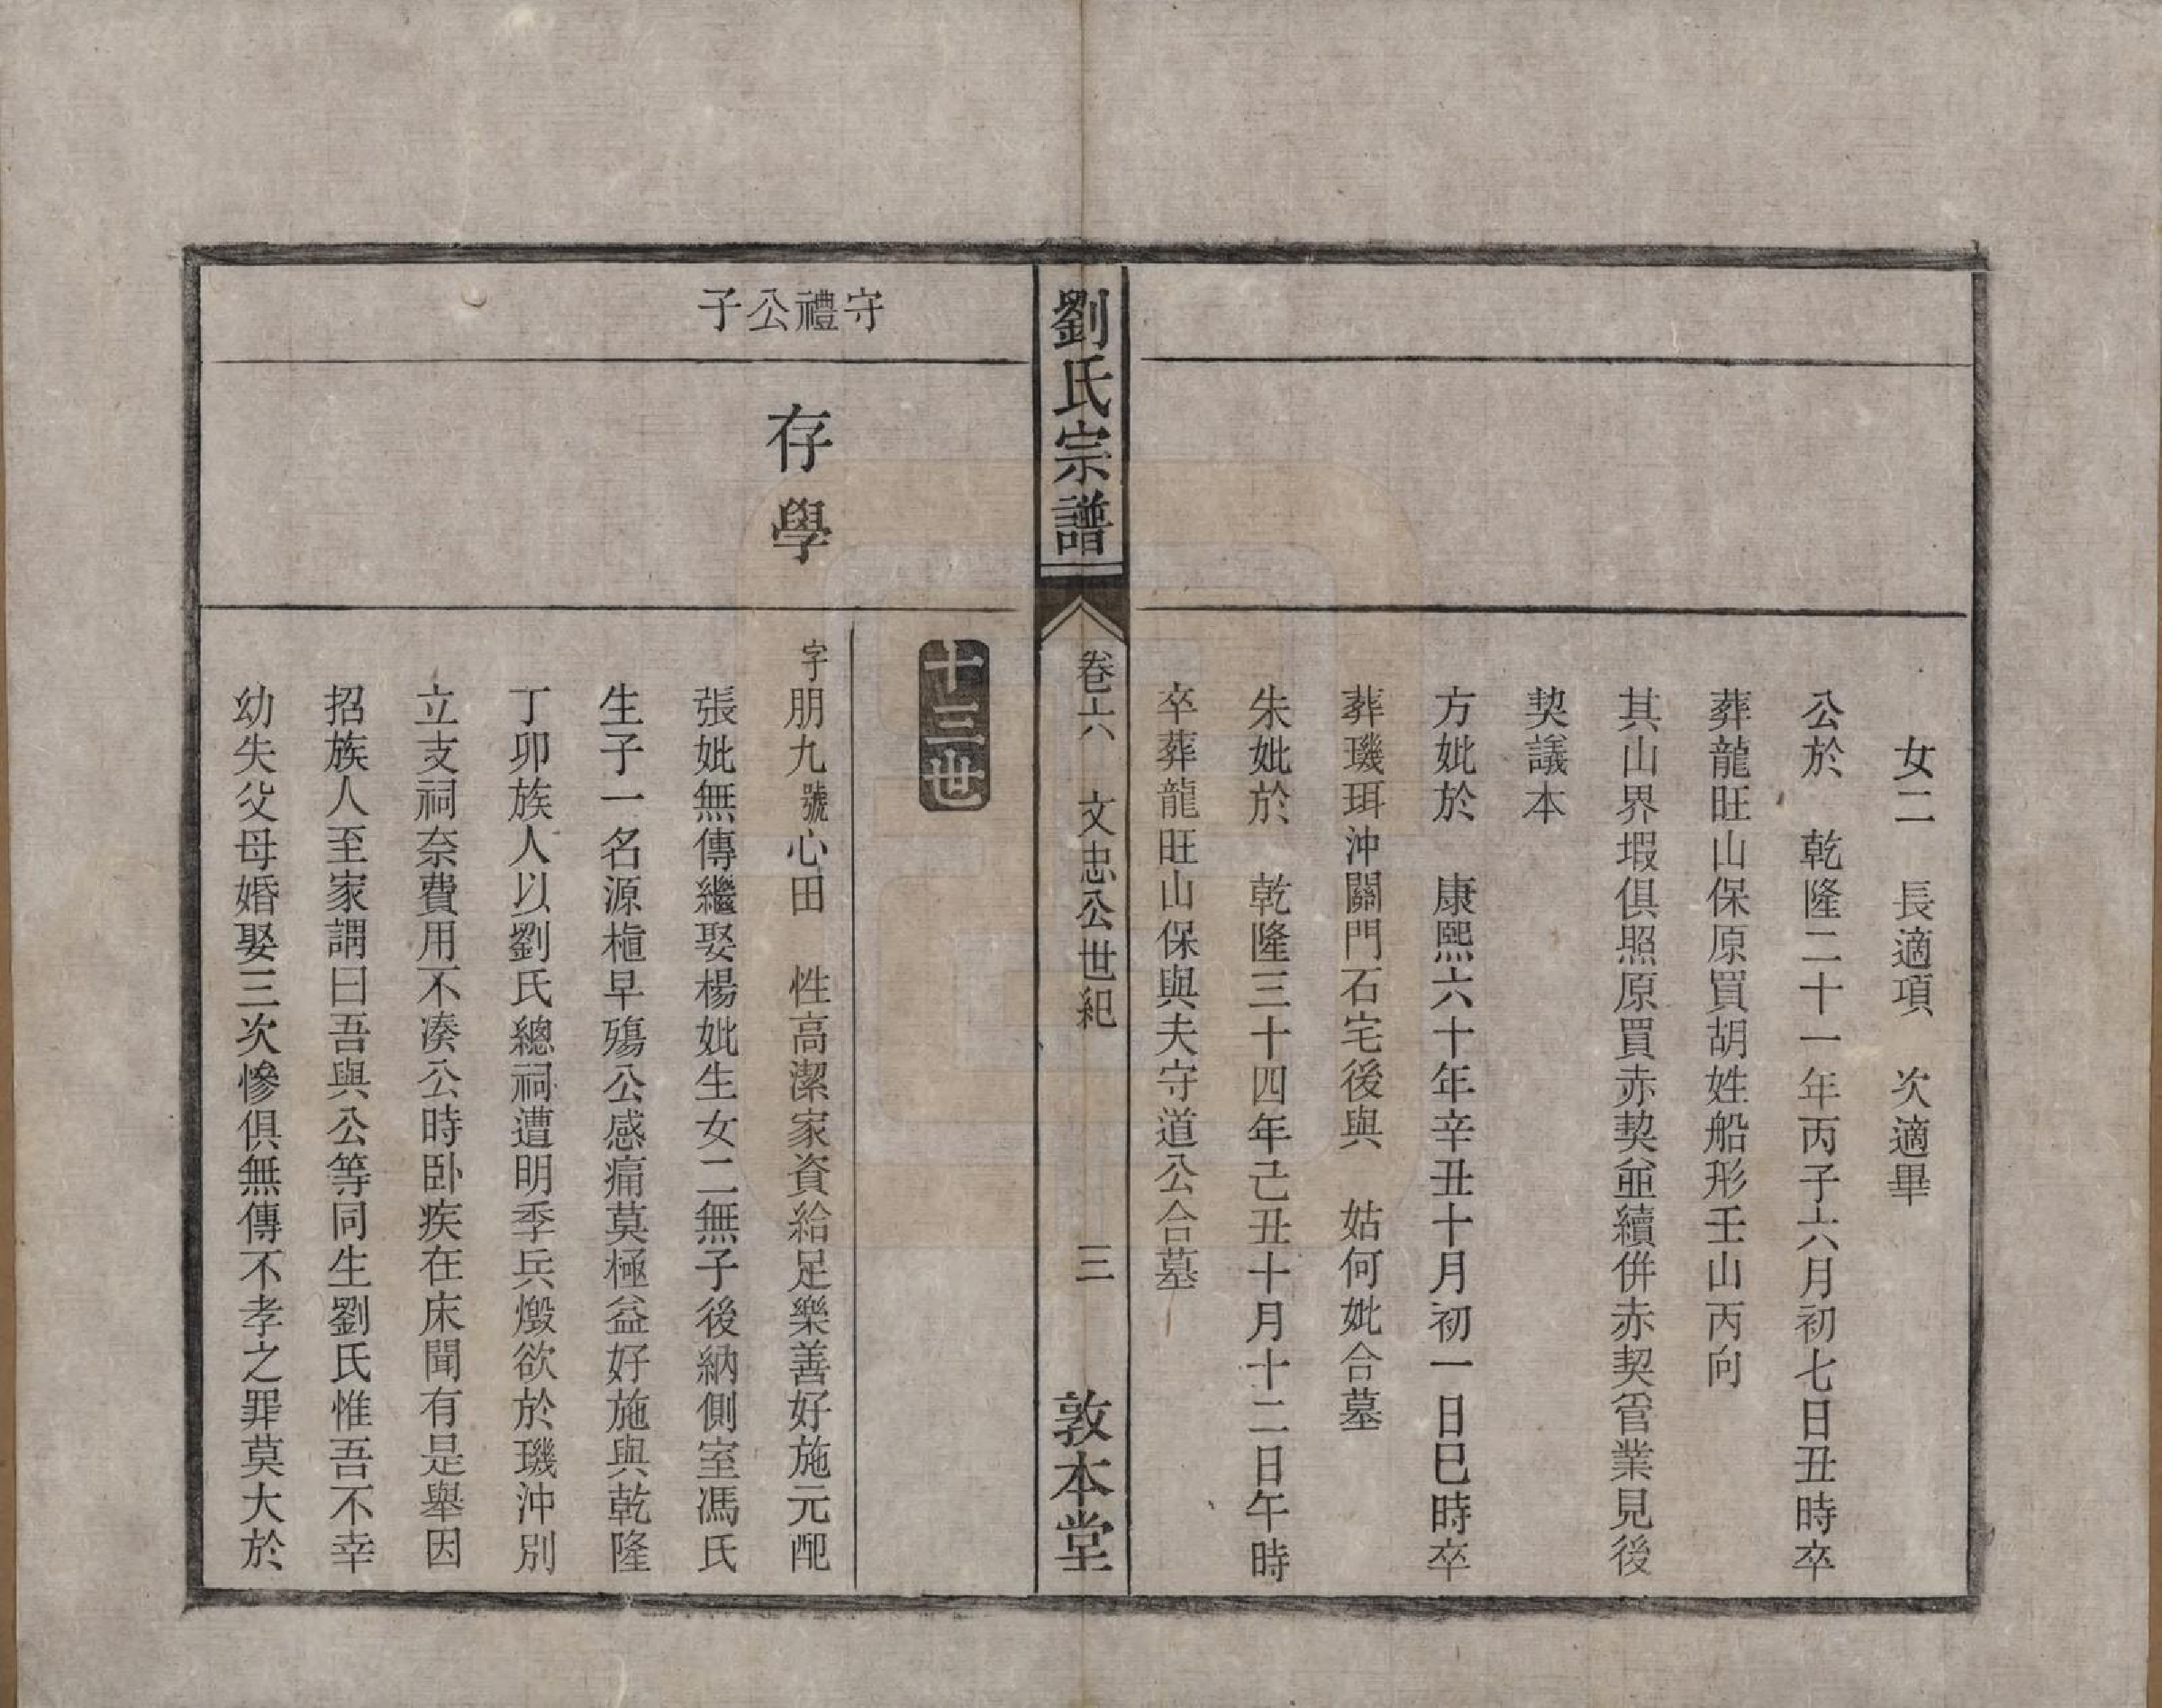 女二　長適項　次適畢
公於　乾隆二十一年丙子六月初七日丑時卒
葬龍旺山保原買胡姓船形壬山丙向
其山界塅俱照原買赤契並續併赤契管業見後
契議本
方妣於　康熙六十年辛丑十月初一日巳時卒
葬璣珥沖關門石宅後與　姑何妣合墓
朱妣於　乾隆三十四年己丑十月十二日午時
卒葬龍旺山保與夫守道公合墓
劉氏宗譜
卷六　文忠公世紀　三　敦本堂
十三世
守禮公子
存學
字朋九號心田　性高潔家資給足樂善好施元配
張妣無傳繼娶楊妣生女二無子後納側室馮氏
生子一名源植早殤公感痛莫極益好施與乾隆
丁卯族人以劉氏總祠遭明季兵燬欲於璣沖別
立支祠奈費用不湊公時卧疾在床聞有是舉因
招族人至家謂曰吾與公等同生劉氏惟吾不幸
幼失父母婚娶三次慘俱無傳不孝之罪莫大於